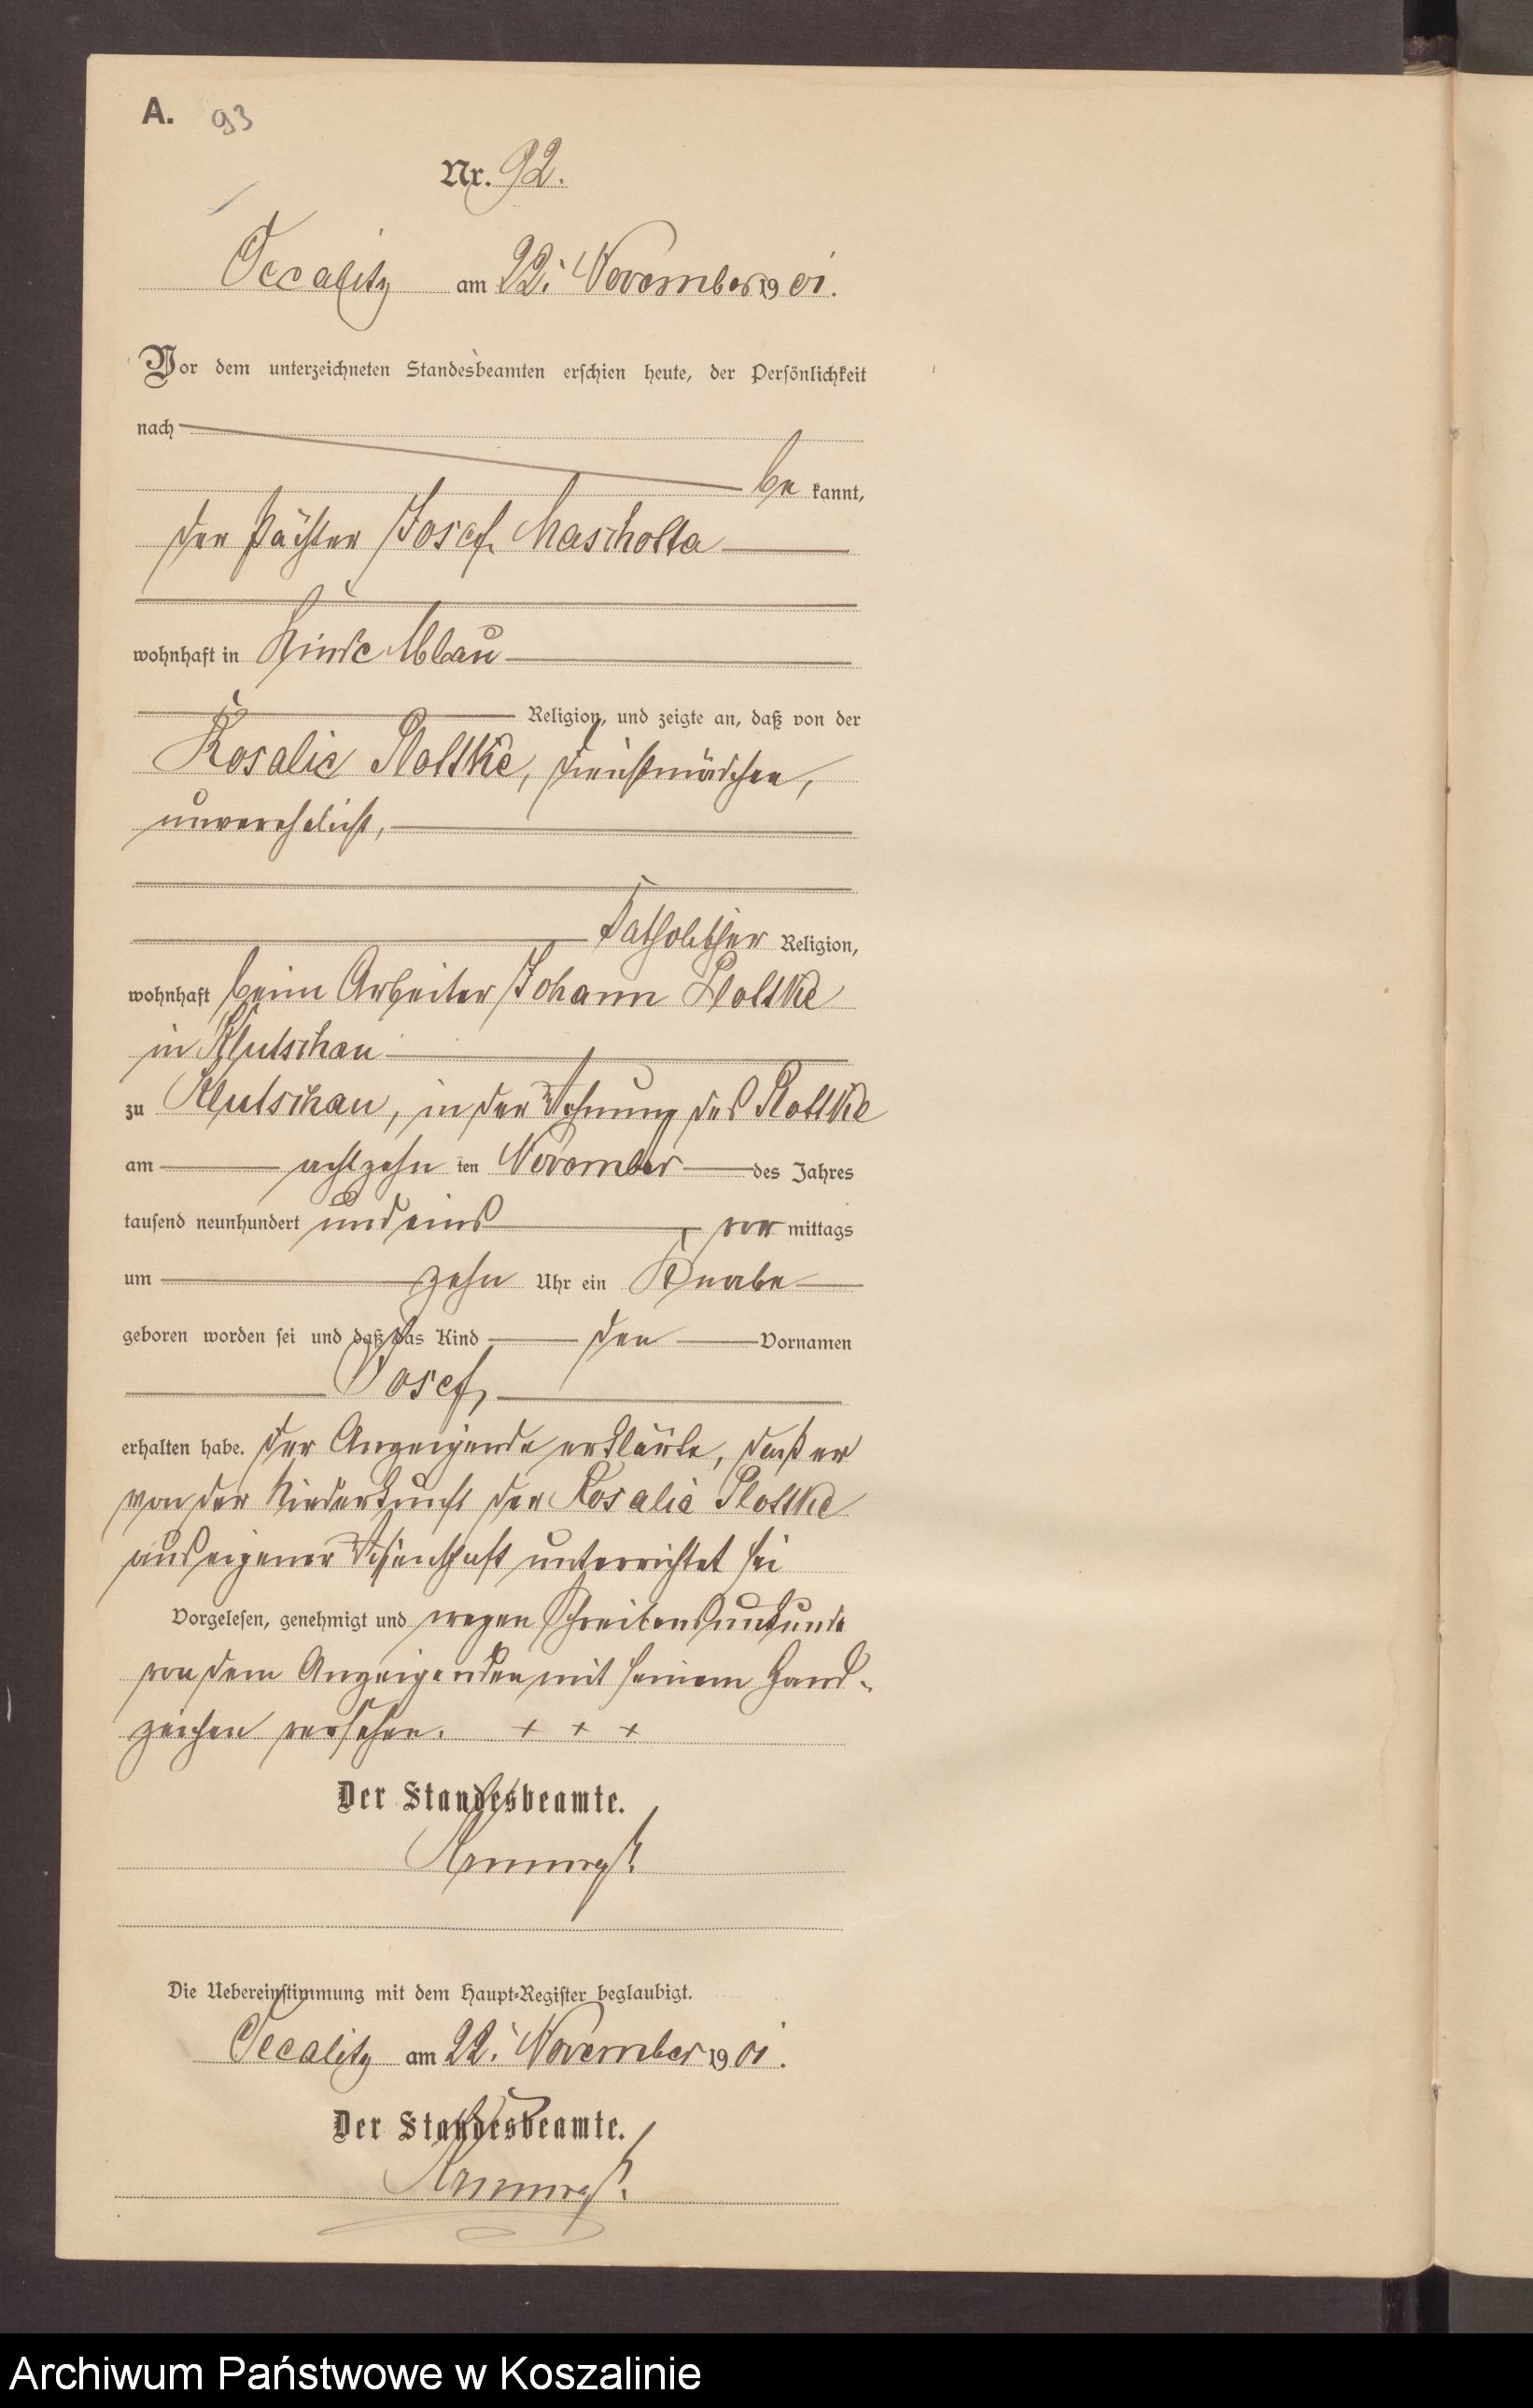 A. 93
Nr. 92.
Occalitz am 22. November 1901.
Vor dem unterzeichneten Standesbeamten erschien heute, der Persönlichkeit
nach
be kannt,
der Pächter Josef Mascholla
wohnhaft in
Religion, und zeigte an, daß von der
Rosalie Plottke, Dienstmädchen,
unverehelicht,
katholischer Religion,
wohnhaft beim Arbeiter Johann Plottke
in Klutschau
zu Klutschau, in der Wohnung des Plottke
am achtzehn ten November des Jahres
tausend neunhundert und eins, vor mittags
um zehn Uhr ein Knabe
geboren worden sei und daß das Kind den Vornamen
Josef,
erhalten habe. Der Anzeigende erklärte, daß er
von der Niederkunft der Rosalie Plottke
aus eigener Wissenschaft unterrichtet sei
Vorgelesen, genehmigt und wegen Schreibensunkunde
von dem Anzeigenden mit seinem Hand-
zeichen versehen. + + +
Der Standesbeamte.
Die Uebereinstimmung mit dem Haupt-Register beglaubigt.
Occalitz am 22. November 1901.
Der Standesbeamte.
Archiwum Państwowe w Koszalinie